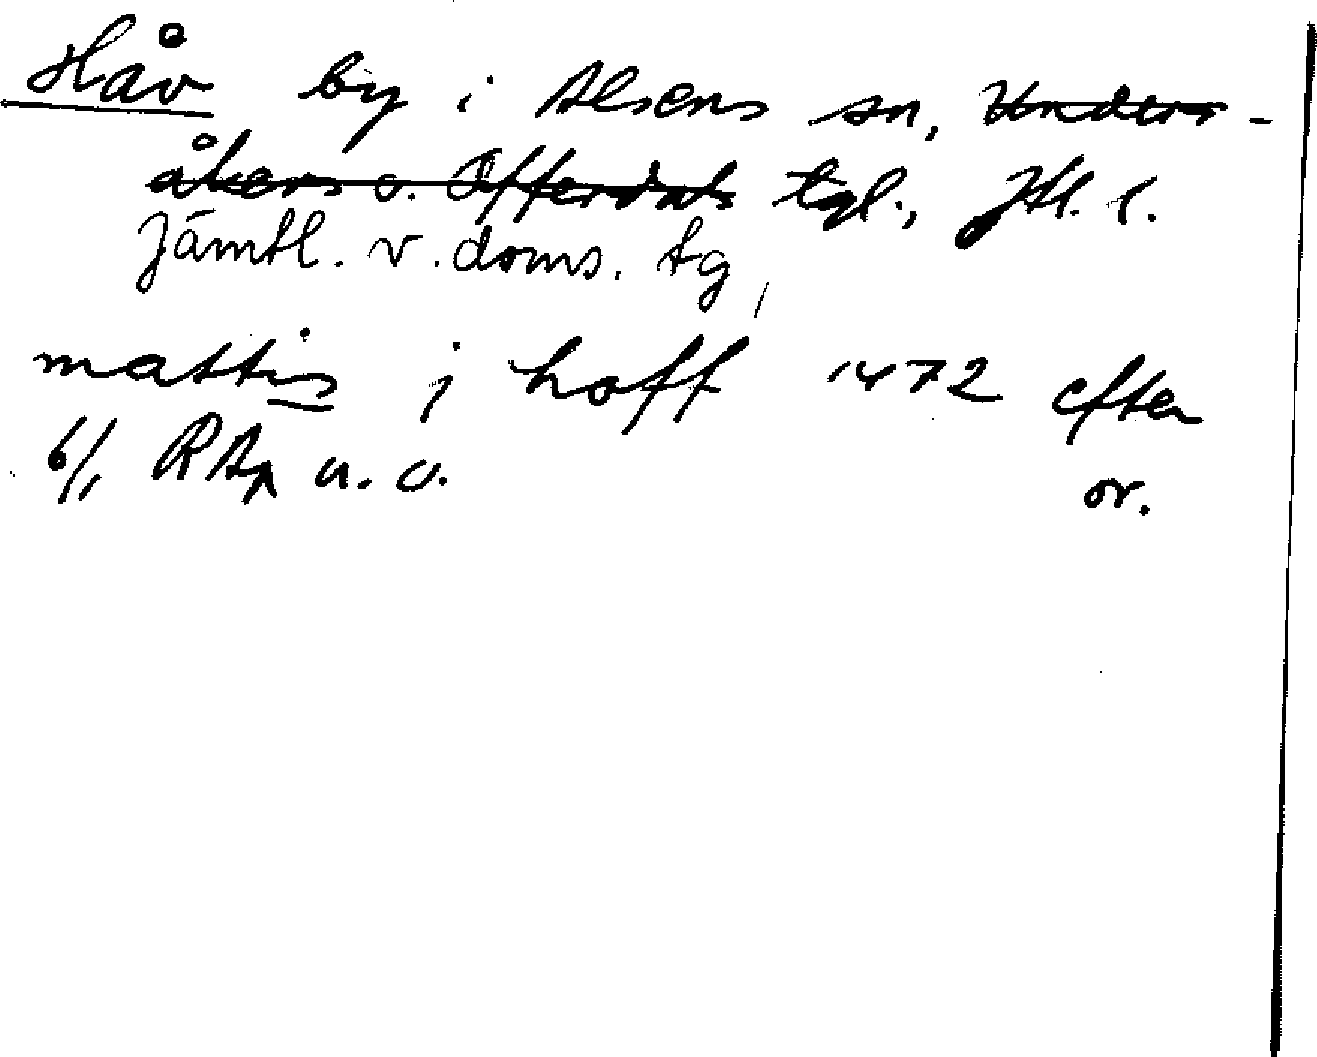 Håv by i Alsens sn, Unders-
åkers o. Offerdals tgl., Jtl. l.
Jämtl. v. doms. tg,
mattis j hoff 1472 efter
6/1 RAp u. o. or.